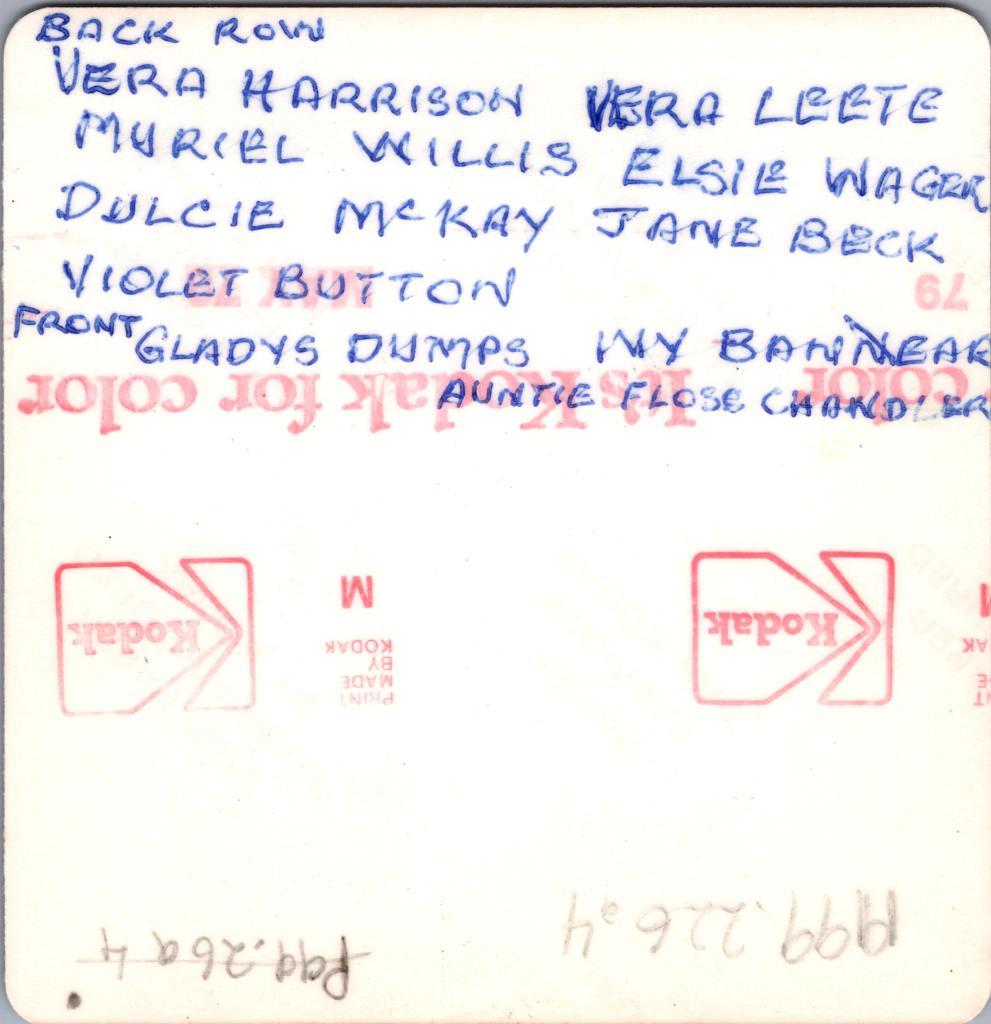 BACK ROW
VERA HARRISON VERA LEETE
MURIEL WILLIS ELSIE WAGER
DULCIE McKAY JANE BECK
VIOLET BUTTON
79
FRONT GLADYS DUMPS IVY BANNEAR
It's Kodak for color
color
AUNTIE FLOSE CHANDLER
Kodak
M
PRINT
MADE
BY
KODAK
Kodak
M
P99.226.4
P99.269 4